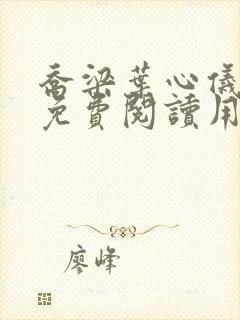 喬梁葉心儀
免費閱讀用
廖峰